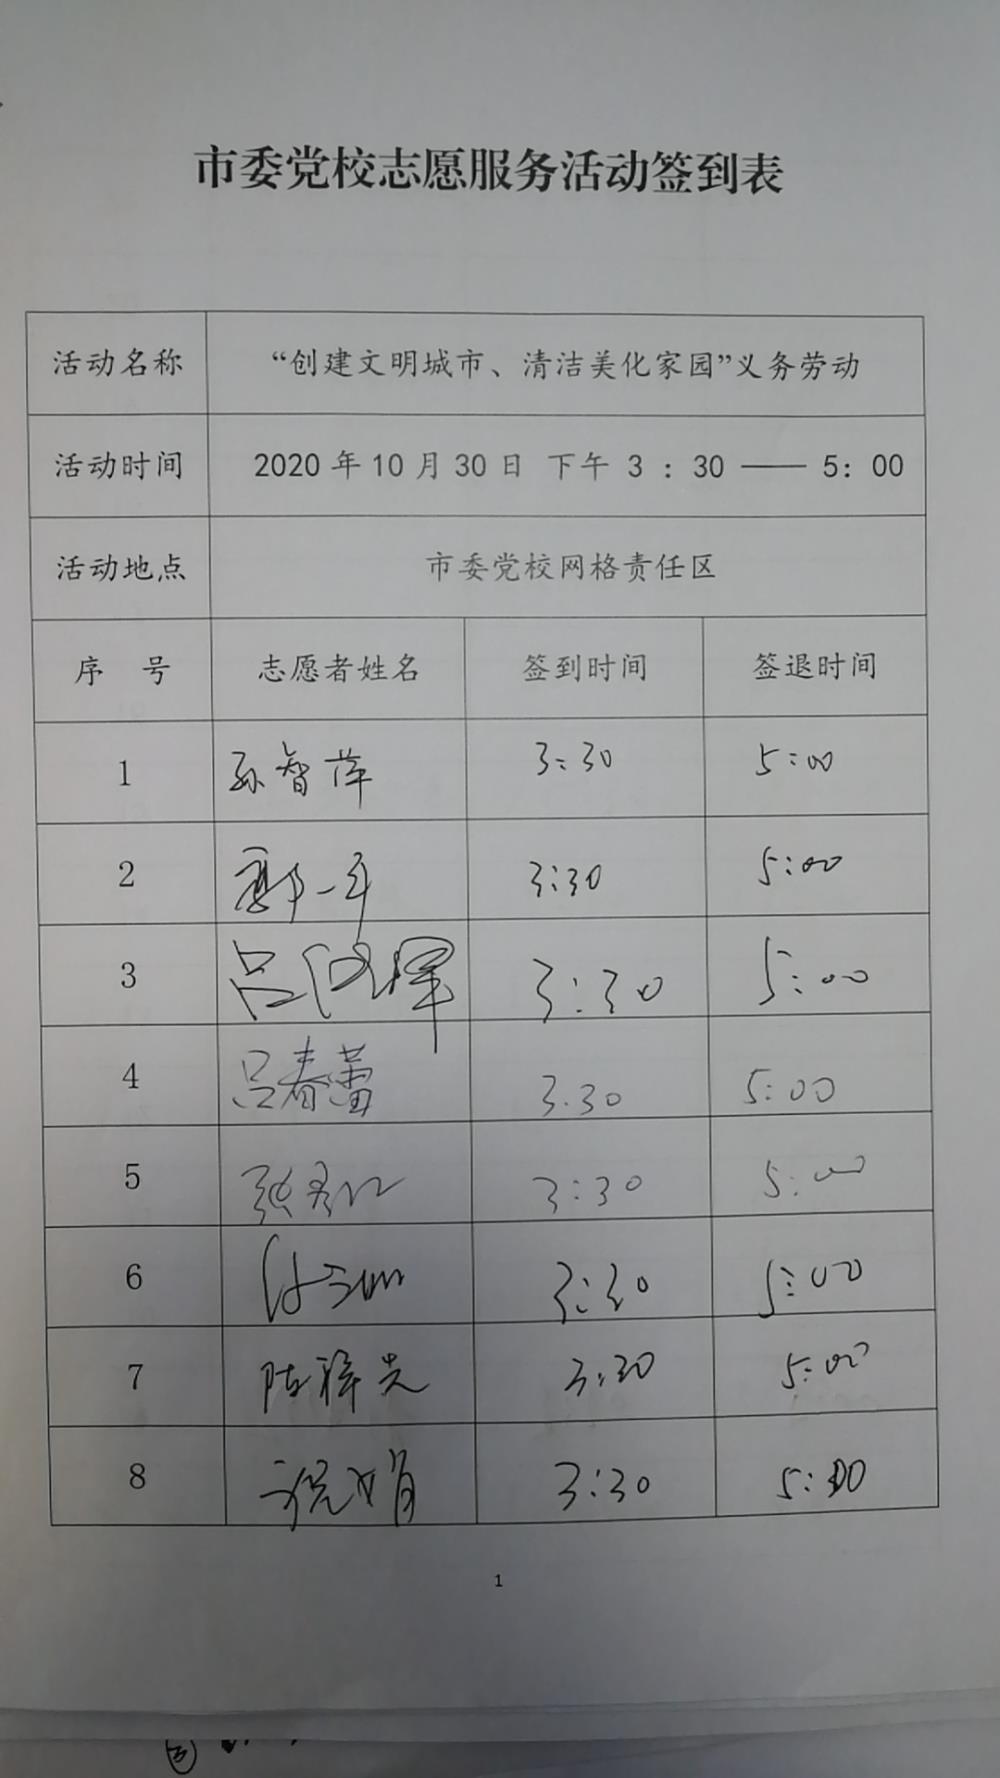 市委党校志愿服务活动签到表
活动名称 “创建文明城市、清洁美化家园”义务劳动
活动时间 2020 年 10 月 30 日 下午 3 : 30 —— 5: 00
活动地点 市委党校网格责任区
序 号 志愿者姓名 签到时间 签退时间
1 孙智萍 3:30 5:00
2 郭一平 3:30 5:00
3 吕 3:30 5:00
4 吕春蕾 3.30 5:00
5 张 3:30 5:00
6 3:30 5:00
7 陆祥光 3:30 5:00
8 娟 3:30 5:00
1